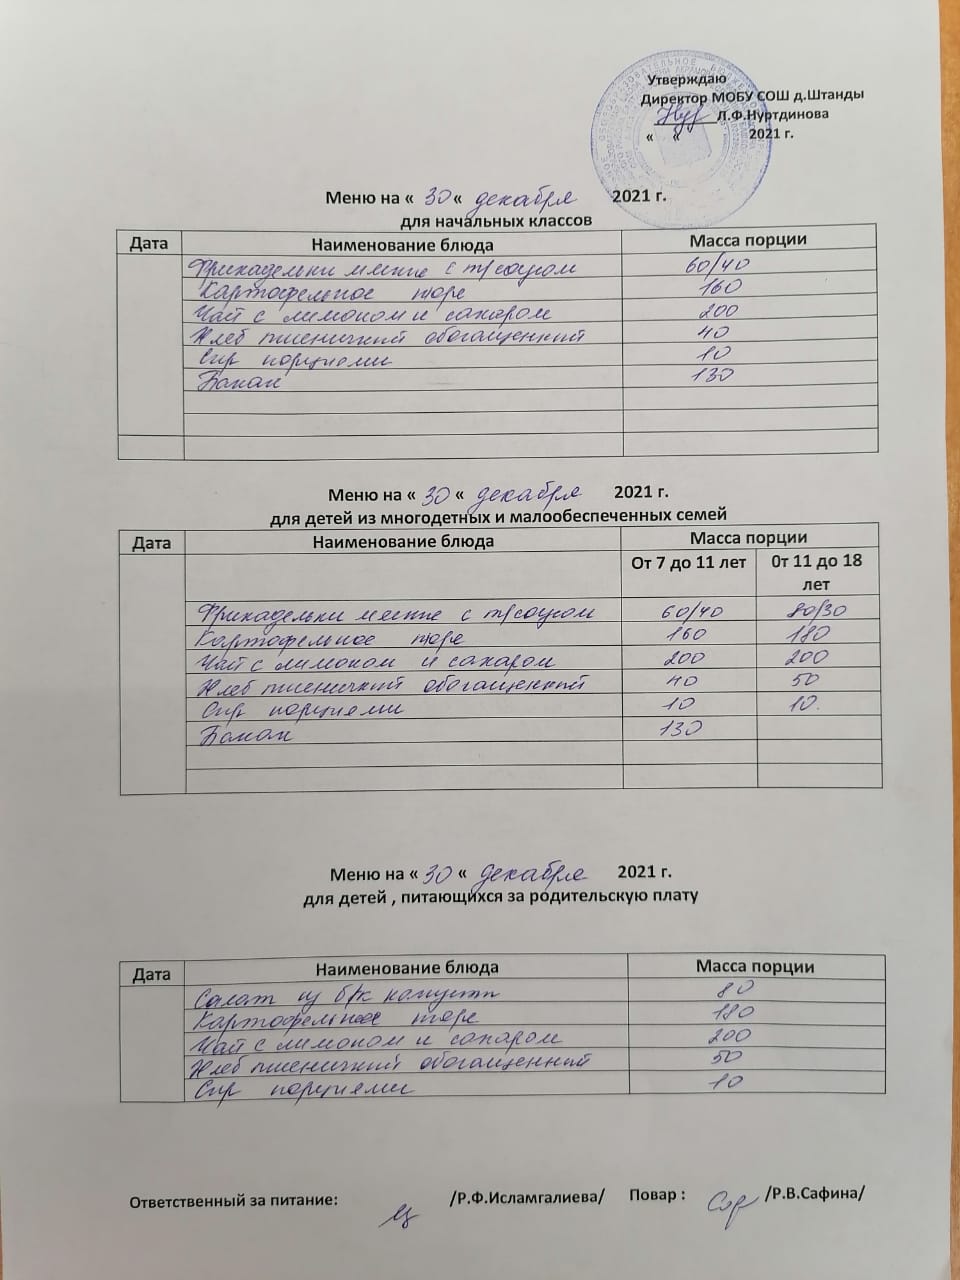 Утверждаю
Директор МОБУ СОШ д.Штанды
Л.Ф.Нуртдинова
« « 2021 г.
Меню на « 30 « декабря 2021 г.
для начальных классов
Дата Наименование блюда Масса порции
Фрикадельки мясные с т/соусом 60/40
Картофельное пюре 160
Чай с лимоном и сахаром 200
Хлеб пшеничный обогащенный 40
Сыр порциями 10
Банан 130
Меню на « 30 « декабря 2021 г.
для детей из многодетных и малообеспеченных семей
Дата Наименование блюда Масса порции
От 7 до 11 лет 0т 11 до 18
лет
Фрикадельки мясные с т/соусом 60/40 80/30
Картофельное пюре 160 180
Чай с лимоном и сахаром 200 200
Хлеб пшеничный обогащенный 40 50
Сыр порциями 10 10.
Банан 130
Меню на « 30 « декабря 2021 г.
для детей , питающихся за родительскую плату
Дата Наименование блюда Масса порции
Салат из б/к капусты 80
Картофельное пюре 180
Чай с лимоном и сахаром 200
Хлеб пшеничный обогащенный 50
Сыр порциями 10
Ответственный за питание: /Р.Ф.Исламгалиева/ Повар : /Р.В.Сафина/